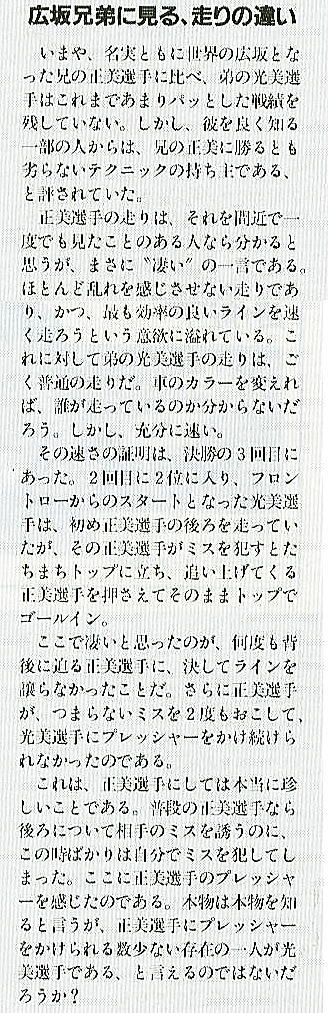 広坂兄弟に見る、走りの違い
いまや、名実ともに世界の広坂とな
った兄の正美選手に比べ、弟の光美選
手はこれまであまりパッとした戦績を
残していない。しかし、彼を良く知る
一部の人からは、兄の正美に勝るとも
劣らないテクニックの持ち主である、
と評されていた。
正美選手の走りは、それを間近で一
度でも見たことのある人なら分かると
思うが、まさに〝凄い〟の一言である。
ほとんど乱れを感じさせない走りであ
り、かつ、最も効率の良いラインを速
く走ろうという意欲に溢れている。こ
れに対して弟の光美選手の走りは、ご
く普通の走りだ。車のカラーを変えれ
ば、誰が走っているのか分からないだ
ろう。しかし、充分に速い。
その速さの証明は、決勝の3回目に
あった。2回目に2位に入り、フロン
トローからのスタートとなった光美選
手は、初め正美選手の後ろを走ってい
たが、その正美選手がミスを犯すとた
ちまちトップに立ち、追い上げてくる
正美選手を押さえてそのままトップで
ゴールイン。
ここで凄いと思ったのが、何度も背
後に迫る正美選手に、決してラインを
譲らなかったことだ。さらに正美選手
が、つまらないミスを2度もおこして、
光美選手にプレッシャーをかけ続けら
れなかったのである。
これは、正美選手にしては本当に珍
しいことである。普段の正美選手なら
後ろについて相手のミスを誘うのに、
この時ばかりは自分でミスを犯してし
まった。ここに正美選手のプレッシャ
ーを感じたのである。本物は本物を知
ると言うが、正美選手にプレッシャー
をかけられる数少ない存在の一人が光
美選手である、と言えるのではないだ
ろうか？